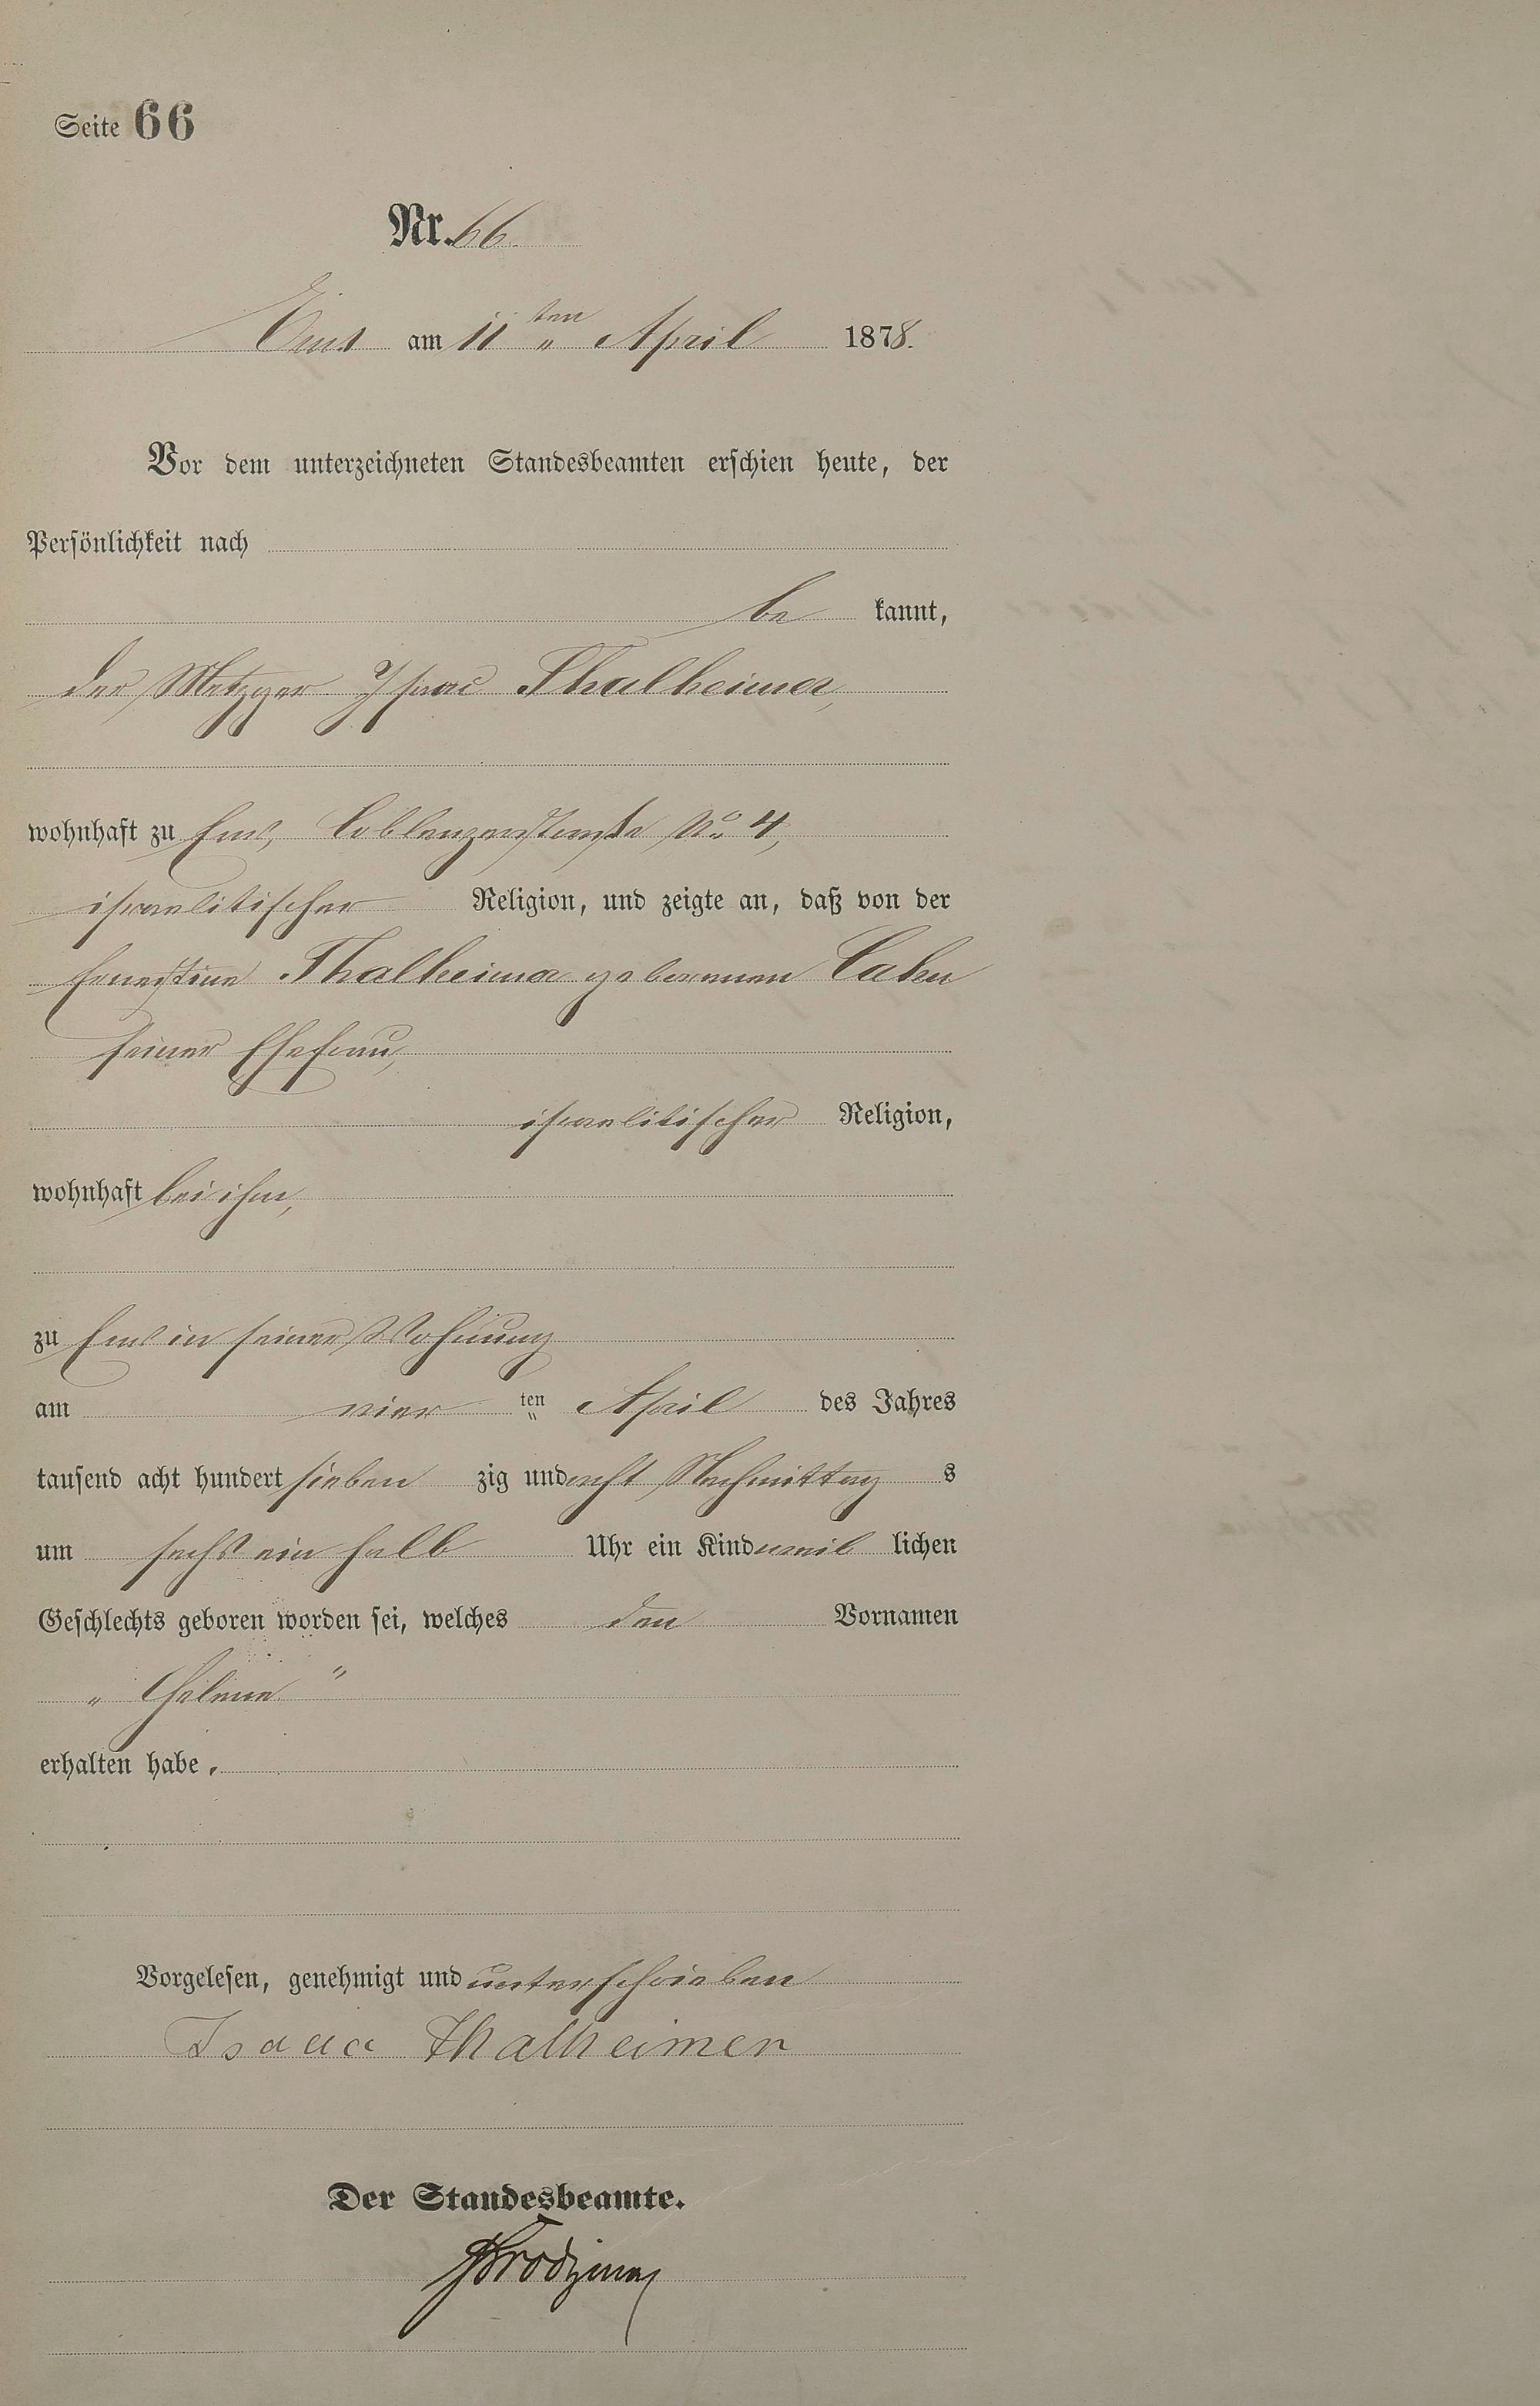 Seite 66
Nr. 66.
Ems am 11ten April 1878.
Vor dem unterzeichneten Standesbeamten erschien heute, der
Persönlichkeit nach
be kannt,
der Metzger Isaac Thalheimer,
wohnhaft zu Ems, Coblenzerstraße No 4,
israelitischer Religion, und zeigte an, daß von der
Ernestine Thalheimer geborenen Cahn
seiner Ehefrau,
israelitischer Religion,
wohnhaft bei ihm,
zu Ems in seiner Wohnung
am vier ten April des Jahres
tausend acht hundert sieben zig und acht Nachmittag s
um sechs ein halb Uhr ein Kind weib lichen
Geschlechts geboren worden sei, welches den Vornamen
erhalten habe.
Vorgelesen, genehmigt und unterschrieben
Isaac Thalheimer
Der Standesbeamte.